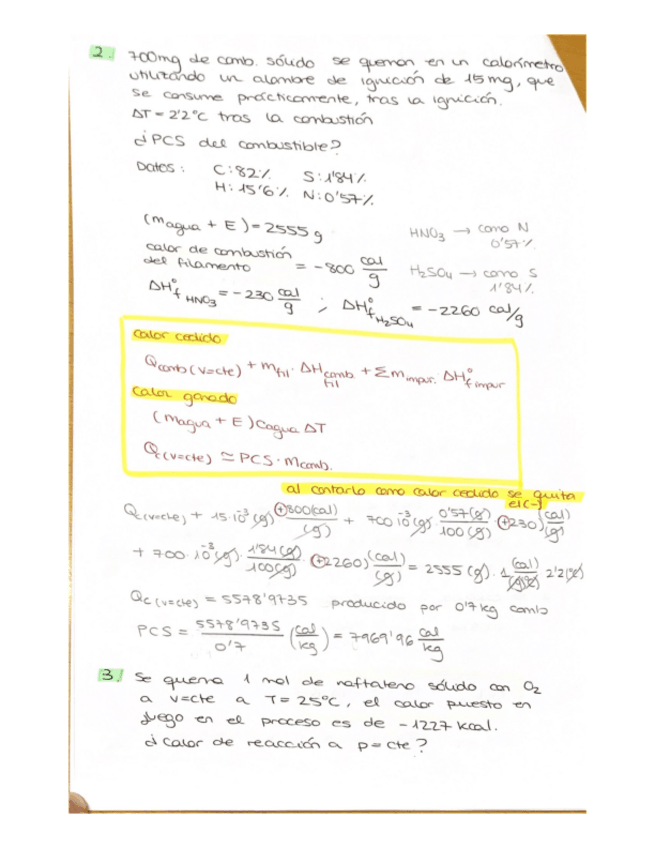 2. 700mg de comb. sólido se queman en un calorímetro
utilizando un alambre de ignición de 15mg, que
se consume prácticamente, tras la ignición.
ΔT = 2'2°C tras la combustión
¿PCS del combustible?
Datos: C: 82% S: 1'84%
H: 15'6% N: 0'57%
(magua + E) = 2555 g
HNO3 → como N
0'57%
calor de combustión
del filamento = -800 cal/g
H2SO4 → como S
1'84%
ΔH°f HNO3 = -230 cal/g ; ΔH°f H2SO4 = -2260 cal/g
calor cedido
Qcomb (v=cte) + mfil · ΔHcomb fil + Σm impur. ΔH°f impur
calor ganado
(magua + E) Cagua ΔT
Qc (v=cte) ≃ PCS · mcomb.
al contarlo como calor cedido se quita
el (-)
Qc (v=cte) + 15·10⁻³ (g) (+800 (cal)/(g) + 700·10⁻³ (g) · 0'57 (g)/100 (g) (+230) (cal)/(g)
+ 700·10⁻³ (g) · 1'84 (g)/100 (g) (+2260) (cal)/(g) = 2555 (g) · 1 (cal)/(g)(°C) 2'2 (°C)
Qc (v=cte) = 5578'9735 producido por 0'7 kg comb
PCS = 5578'9735/0'7 (cal/kg) = 7969'96 cal/kg
3. Se quema 1 mol de naftaleno sólido con O2
a v=cte a T=25°C, el calor puesto en
juego en el proceso es de -1227 kcal.
¿Calor de reacción a p=cte?